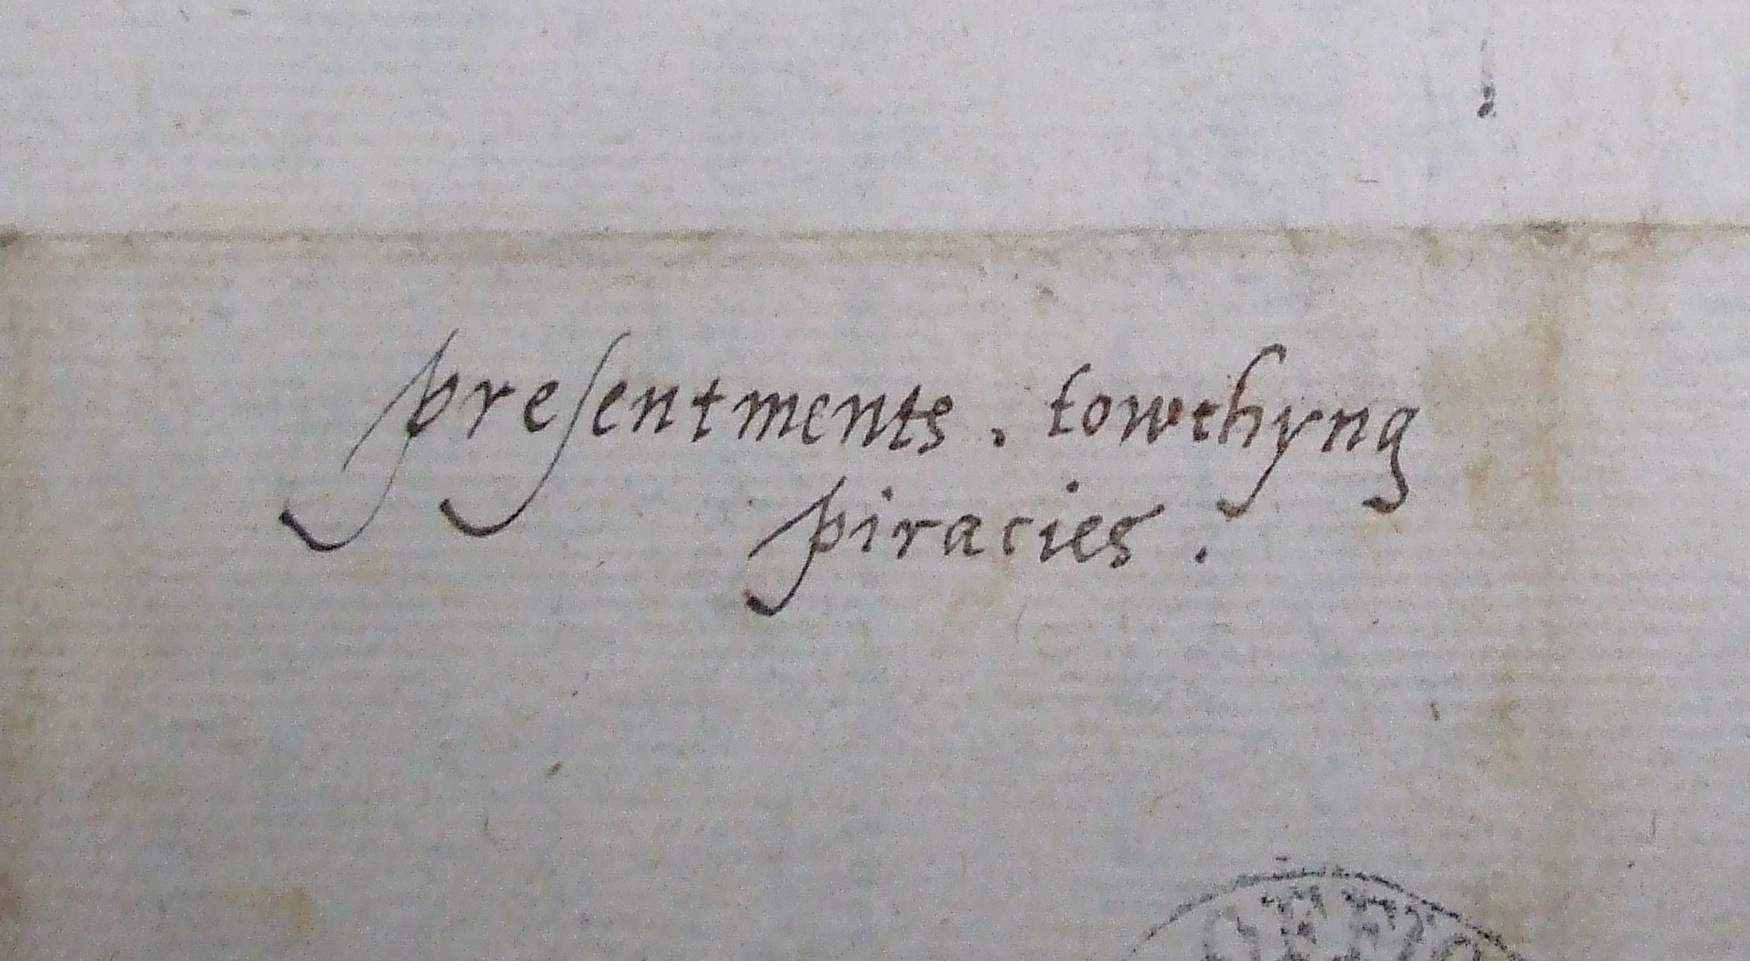 preſentments . towchyng
piracies .